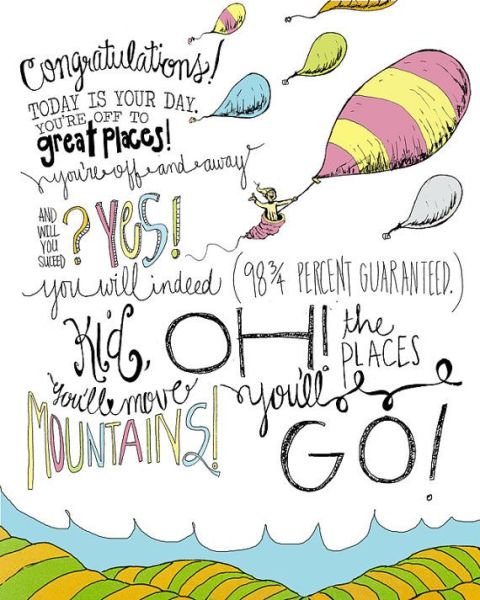 Congratulations!
TODAY IS YOUR DAY.
YOU'RE OFF TO
great places!
you're off and away
AND
WILL
YOU
SUCEED
? YES!
you will indeed
(98 3/4 PERCENT GUARANTEED.)
Kid,
you'll move
MOUNTAINS!
OH!
the
PLACES
you'll
GO!